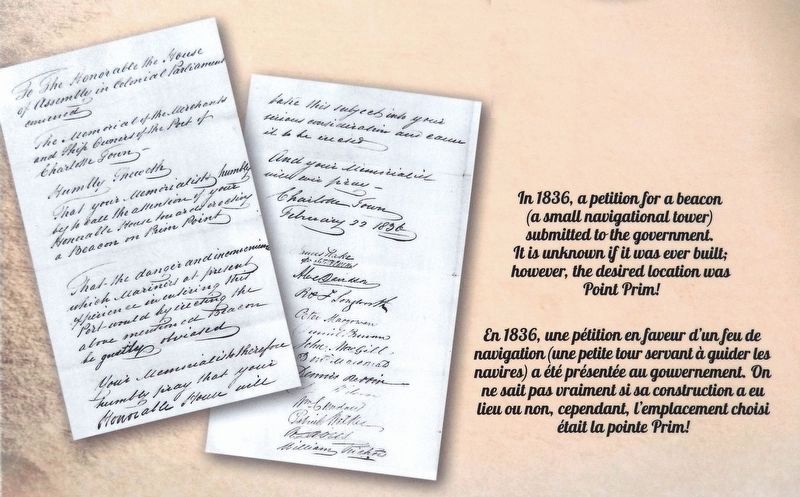 To The Honorable the House
of Assembly in Colonial Parliament
convened
The Memorial of the Merchants
and Ship Owners of the Port of
Charlotte Town—
Humbly Sheweth
That your Memorialists humbly
beg to call the attention of your
Honorable House towards erecting
a Beacon on Prim Point
That the danger and inconvenience
which Mariners at present
Experience in entering this
Port would by erecting the
above mentioned Beacon
be greatly obviated
Your Memorialists therefore
humbly pray that your
Honorable House will
take this subject into your
serious consideration and cause
it to be erected
And your Memorialists
will ever pray—
Charlotte Town
February 22 1836
James Peake
Peter Macgowan
Daniel Brenan
John McGill
Dennis
Patrick Walker
William
In 1836, a petition for a beacon
(a small navigational tower)
submitted to the government.
It is unknown if it was ever built;
however, the desired location was
Point Prim!
En 1836, une pétition en faveur d'un feu de
navigation (une petite tour servant à guider les
navires) a été présentée au gouvernement. On
ne sait pas vraiment si sa construction a eu
lieu ou non, cependant, l'emplacement choisi
était la pointe Prim!